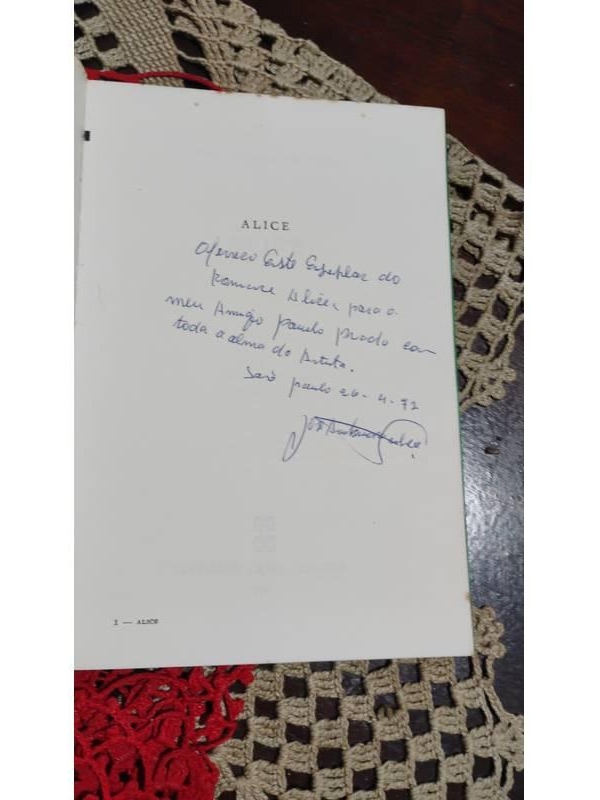 ALICE
Ofereço Este Exemplar do
Romance Alice para o
meu Amigo Paulo Prado com
toda a alma do Artista.
São Paulo 26-4-72
José Antonio
1 — ALICE